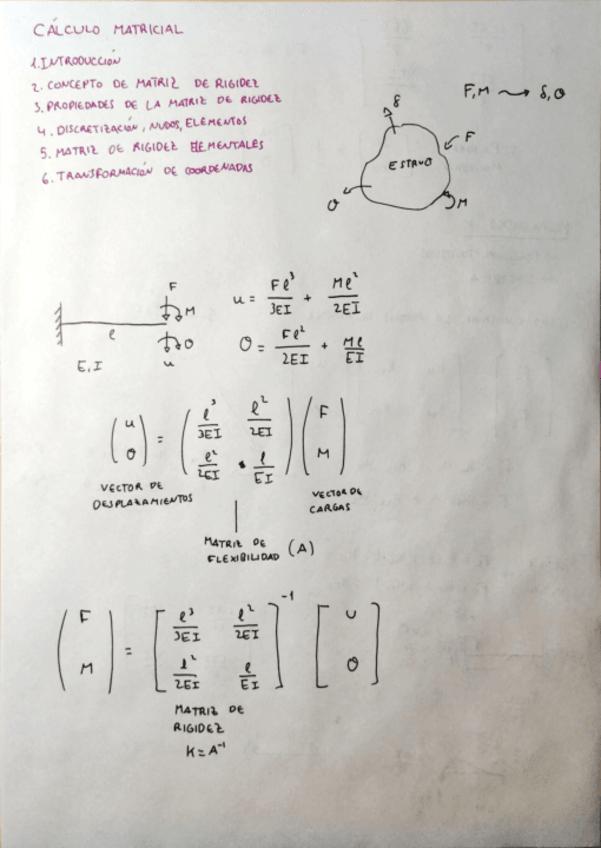 CÁLCULO MATRICIAL
1. INTRODUCCIÓN
2. CONCEPTO DE MATRIZ DE RIGIDEZ
3. PROPIEDADES DE LA MATRIZ DE RIGIDEZ
4. DISCRETIZACIÓN, NUDOS, ELEMENTOS
5. MATRIZ DE RIGIDEZ ELEMENTALES
6. TRANSFORMACIÓN DE COORDENADAS
F,M → δ,θ
δ
F
θ
M
F
M
ℓ
θ
E,I
u
u = Fℓ³/3EI + Mℓ²/2EI
θ = Fℓ²/2EI + Mℓ/EI
(u θ) = (ℓ³/3EI ℓ²/2EI ℓ²/2EI · ℓ/EI) (F M)
VECTOR DE
DESPLAZAMIENTOS
VECTOR DE
CARGAS
MATRIZ DE
FLEXIBILIDAD (A)
(F M) = [ℓ³/3EI ℓ²/2EI ℓ²/2EI ℓ/EI]⁻¹ [U θ]
MATRIZ DE
RIGIDEZ
K = A⁻¹